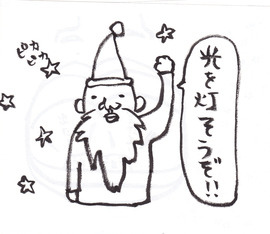 光を灯そうぞ!!
ピカピカ